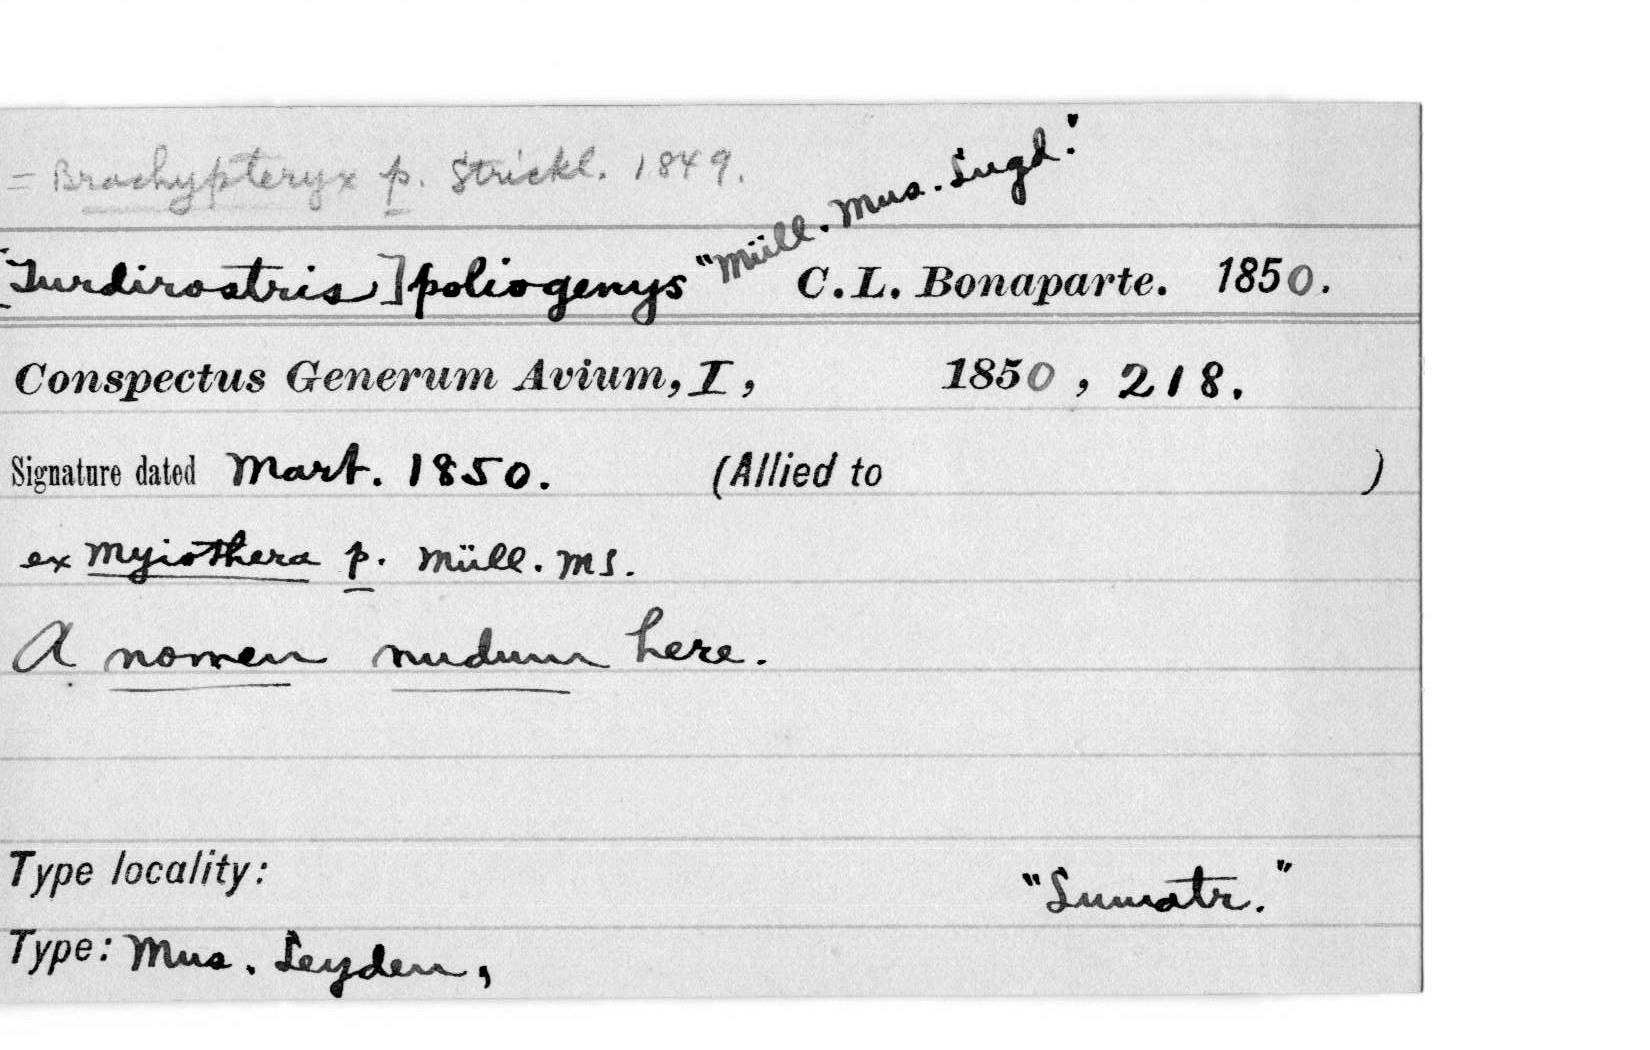 = Brachypteryx p. Strickl. 1849.
[Turdirostris] poliogenys "Müll. Mus. Lugd." C. L. Bonaparte. 1850.
Conspectus Generum Avium, I, 1850, 218.
Signature dated Mart. 1850. (Allied to )
ex Myiothera p. Müll. MS.
A nomen nudum here.
Type locality: "Sumatr."
Type: Mus. Leyden,